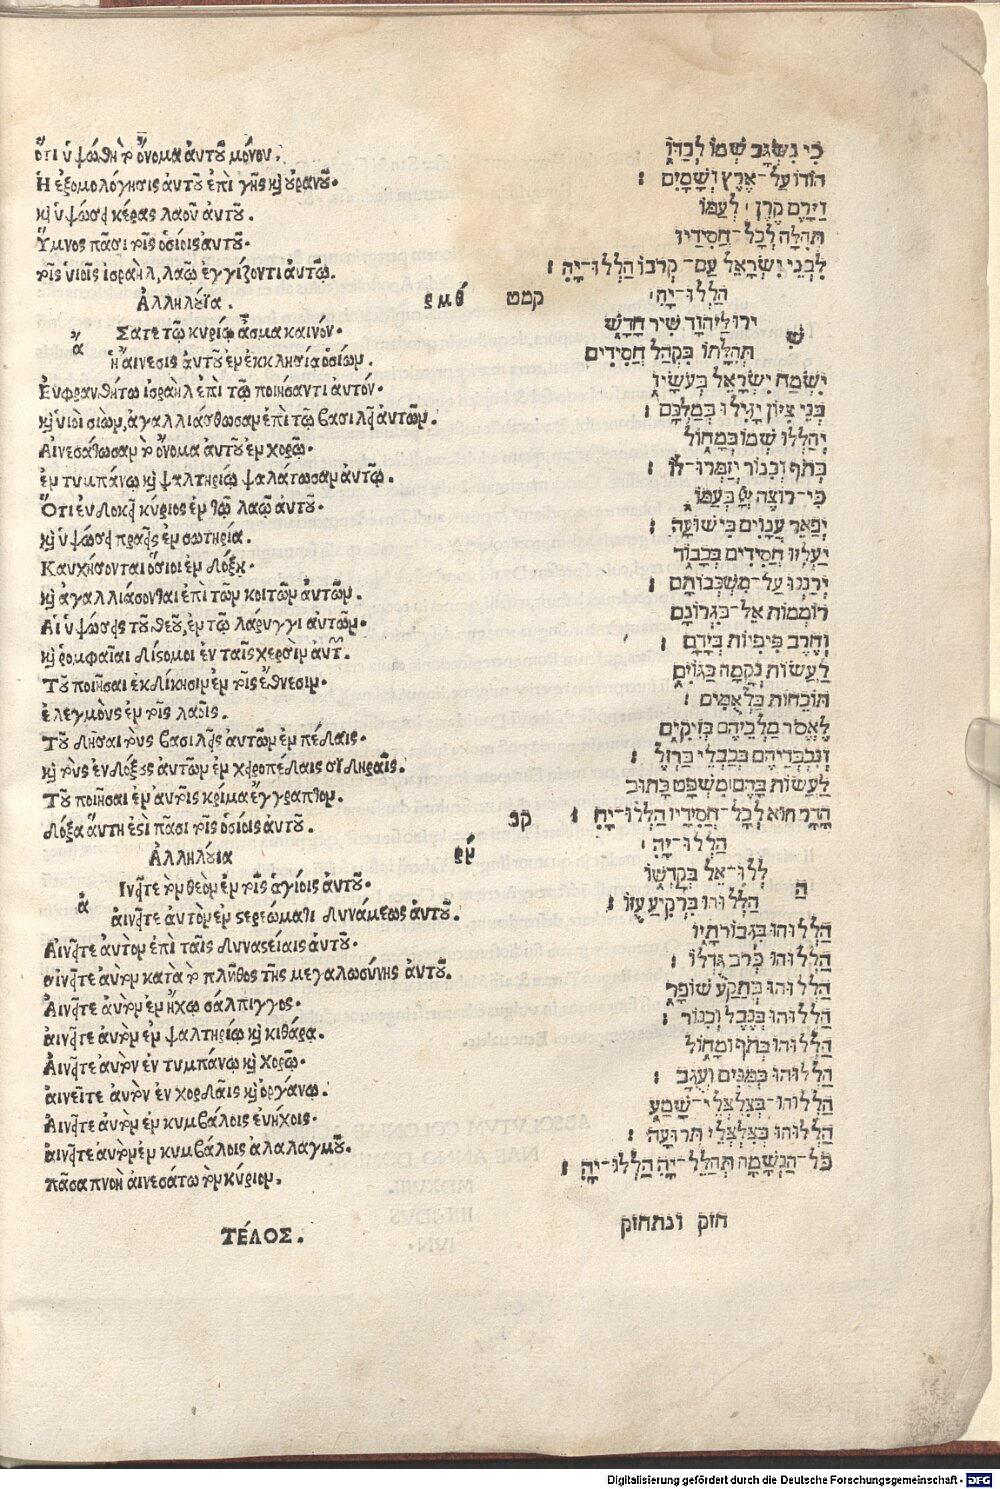 ὅτι ὑψώθη τὸ ὄνομα ἀυτοῦ μόνου.
Ἡ ἐξομολόγησις ἀυτοῦ ἐπὶ γῆς καὶ οὐρανοῦ·
καὶ ὑψώσει κέρας λαοῦ ἀυτοῦ.
Ὕμνος πᾶσι τοῖς ὁσίοις ἀυτοῦ·
τοῖς υἱοῖς ἰσραὴλ, λαῷ ἐγγίζοντι ἀυτῷ.
Ἀλληλούϊα. ρμθ
ᾌ Σατε τῷ κυρίῳ ᾆσμα καινόν·
ἡ αἴνεσις ἀυτοῦ ἐν ἐκκλησίᾳ ὁσίων.
Ἐυφρανθήτω ἰσραὴλ ἐπὶ τῷ ποιήσαντι ἀυτόν·
καὶ υἱοὶ σιὼν, ἀγαλλιάσθωσαν ἐπὶ τῷ βασιλεῖ ἀυτῶν.
Ἀινεσάτωσαν τὸ ὄνομα ἀυτοῦ ἐν χορῷ·
ἐν τυμπάνῳ καὶ ψαλτηρίῳ ψαλάτωσαν ἀυτῷ.
Ὅτι ἐυδοκεῖ κύριος ἐν τῷ λαῷ ἀυτοῦ·
καὶ ὑψώσει πραεῖς ἐν σωτηρίᾳ.
Καυχήσονται ὅσιοι ἐν δόξῃ·
καὶ ἀγαλλιάσονται ἐπὶ τῶν κοιτῶν ἀυτῶν.
Ἁι ὑψώσεις τοῦ θεοῦ, ἐν τῷ λάρυγγι ἀυτῶν·
καὶ ῥομφαῖαι δίστομοι ἐν ταῖς χερσὶν ἀυτῶν.
Τοῦ ποιῆσαι ἐκδίκησιν ἐν τοῖς ἔθνεσιν·
ἐλεγμοὺς ἐν τοῖς λαοῖς.
Τοῦ δῆσαι τοὺς βασιλεῖς ἀυτῶν ἐν πέδαις·
καὶ τοὺς ἐνδόξους ἀυτῶν ἐν χειροπέδαις σιδηραῖς.
Τοῦ ποιῆσαι ἐν ἀυτοῖς κρίμα ἔγγραπτον.
δόξα ἅυτη ἐστὶ πᾶσι τοῖς ὁσίοις ἀυτοῦ.
Ἀλληλούϊα ρν
ἀ Ινεῖτε τὸν θεὸν ἐν τοῖς ἁγίοις ἀυτοῦ·
ἀινεῖτε ἀυτὸν ἐν στερεώματι δυνάμεως ἀυτοῦ.
Ἀινεῖτε ἀυτὸν ἐπὶ ταῖς δυναστείαις ἀυτοῦ·
αἰνεῖτε ἀυτὸν κατὰ τὸ πλῆθος τῆς μεγαλωσύνης ἀυτοῦ.
Ἀινεῖτε ἀυτὸν ἐν ἤχῳ σάλπιγγος·
ἀινεῖτε ἀυτὸν ἐν ψαλτηρίῳ καὶ κιθάρᾳ.
Ἀινεῖτε ἀυτὸν ἐν τυμπάνῳ καὶ χορῷ·
ἀινεῖτε ἀυτὸν ἐν χορδαῖς καὶ ὀργάνῳ.
Ἀινεῖτε ἀυτὸν ἐν κυμβάλοις ἐυήχοις·
ἀινεῖτε ἀυτὸν ἐν κυμβάλοις ἀλαλαγμοῦ.
πᾶσα πνοὴ ἀινεσάτω τὸν κύριον.
ΤΕ´ΛΟΣ.
כִּי נִשְׂגָּב שְׁמוֹ לְבַדּוֹ
הוֹדוֹ עַל־אֶרֶץ וְשָׁמָיִם׃
וַיָּרֶם קֶרֶן לְעַמּוֹ
תְּהִלָּה לְכָל־חֲסִידָיו
לִבְנֵי יִשְׂרָאֵל עַם־קְרֹבוֹ הַלְלוּ־יָהּ׃
קמט הַלְלוּ־יָהּ
שִׁ ירוּ לַיהוָֹה שִׁיר חָדָשׁ
תְּהִלָּתוֹ בִּקְהַל חֲסִידִים
יִשְׂמַח יִשְׂרָאֵל בְּעֹשָׂיו
בְּנֵי צִיּוֹן יָגִילוּ בְמַלְכָּם׃
יְהַלְלוּ שְׁמוֹ בְמָחוֹל
בְּתֹף וְכִנּוֹר יְזַמְּרוּ־לוֹ׃
כִּי־רוֹצֶה יְיָ בְּעַמּוֹ
יְפָאֵר עֲנָוִים בִּישׁוּעָה׃
יַעְלְזוּ חֲסִידִים בְּכָבוֹד
יְרַנְּנוּ עַל־מִשְׁכְּבוֹתָם׃
רוֹמְמוֹת אֵל־בִּגְרוֹנָם
וְחֶרֶב פִּיפִיּוֹת בְּיָדָם׃
לַעֲשׂוֹת נְקָמָה בַּגּוֹיִם
תּוֹכֵחוֹת בַּלְאֻמִּים׃
לֶאְסֹר מַלְכֵיהֶם בְּזִיקִים
וְנִכְבְּדֵיהֶם בְּכַבְלֵי בַרְזֶל׃
לַעֲשׂוֹת בָּהֶם מִשְׁפָּט כָּתוּב
הָדָר הוּא לְכָל־חֲסִידָיו הַלְלוּ־יָהּ׃ קנ
הַלְלוּ־יָהּ׃
הַ לְלוּ־אֵל בְּקָדְשׁוֹ
הַלְלוּהוּ בִּרְקִיעַ עֻזּוֹ׃
הַלְלוּהוּ בִגְבוּרֹתָיו
הַלְלוּהוּ כְּרֹב גֻּדְלוֹ׃
הַלְלוּהוּ בְּתֵקַע שׁוֹפָר
הַלְלוּהוּ בְּנֵבֶל וְכִנּוֹר׃
הַלְלוּהוּ בְתֹף וּמָחוֹל
הַלְלוּהוּ בְּמִנִּים וְעֻגָב׃
הַלְלוּהוּ־בְצִלְצְלֵי־שָׁמַע
הַלְלוּהוּ בְּצִלְצְלֵי תְרוּעָה׃
כֹּל־הַנְּשָׁמָה תְּהַלֵּל־יָהּ הַלְלוּ־יָהּ׃
חזק ונתחזק
Digitalisierung gefördert durch die Deutsche Forschungsgemeinschaft - DFG